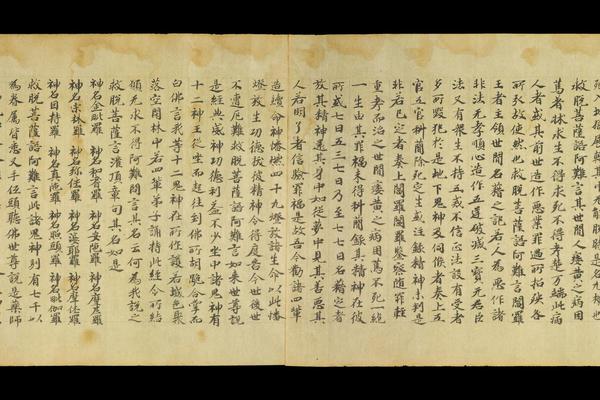 救脫菩薩語阿難言其世間人痿黃之病困
篤者牀求生不得求死不得考楚万端此病
人者或其前世造作惡業罪過所招殃各
所引故使然也救脫菩薩語阿難言閻羅
王者主領世間名籍之記若人為惡作諸
非法无孝順心造作五逆破滅三寶无君臣
法又有衆生不持五戒不信正法設有受者
多所毀犯於是地下鬼神及伺候者奏上五
官五官料簡除死定生或注錄精神未判是
非若已定者奏上閻羅閻羅鑒察隨罪輕
重考而治之世間痿黃之病困篤不死一絕
一生由其罪福未得料簡錄其精神在彼
所或七日五三七日乃至七七日名籍定者
放其精神還其身中如從夢中見其善惡其
人若明了者信驗罪福是故吾今勸諸四輩
造續命神幡燃四十九燈放諸生命以此幡
燈放生功德拔彼精神令得度苦今世後世
不遭厄難救脫菩薩語阿難言如來世尊說
是經典威神功德利益不少坐中諸鬼神有
十二神王從坐而起往到佛所胡跪合掌而
白佛言我等十二鬼神在所作護若城邑聚
落空閑林中若四輩弟子誦持此經令所結
願无求不得阿難問言其名云何為我說之
救脫菩薩言灌頂章句其名如是
神名金毗羅 神名和耆羅 神名摩尼羅
神名宗林羅 神名弥佉羅 神名安陀羅 神名婆耶羅 神名摩休羅
神名因持羅 神名真陀羅 神名照頭羅 神名毗伽羅
救脫菩薩語阿難言此諸鬼神別有七千以
為眷屬皆悉叉手伍頭聽佛世尊說是藥師